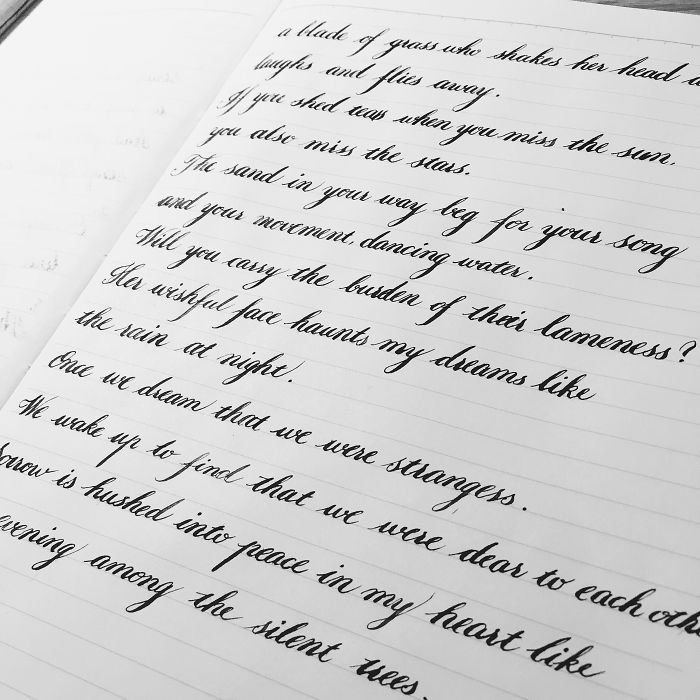 a blade of grass who shakes her head
laughs and flies away.
If you shed teas when you miss the sun,
you also miss the stars.
The sand in your way beg for your song
and your movement, dancing water.
Will you carry the burden of their lameness?
Her wishful face haunts my dreams like
the rain at night.
Once we dream that we were strangers.
We wake up to find that we were dear to each oth
orrow is hushed into peace in my heart like
evening among the silent trees.